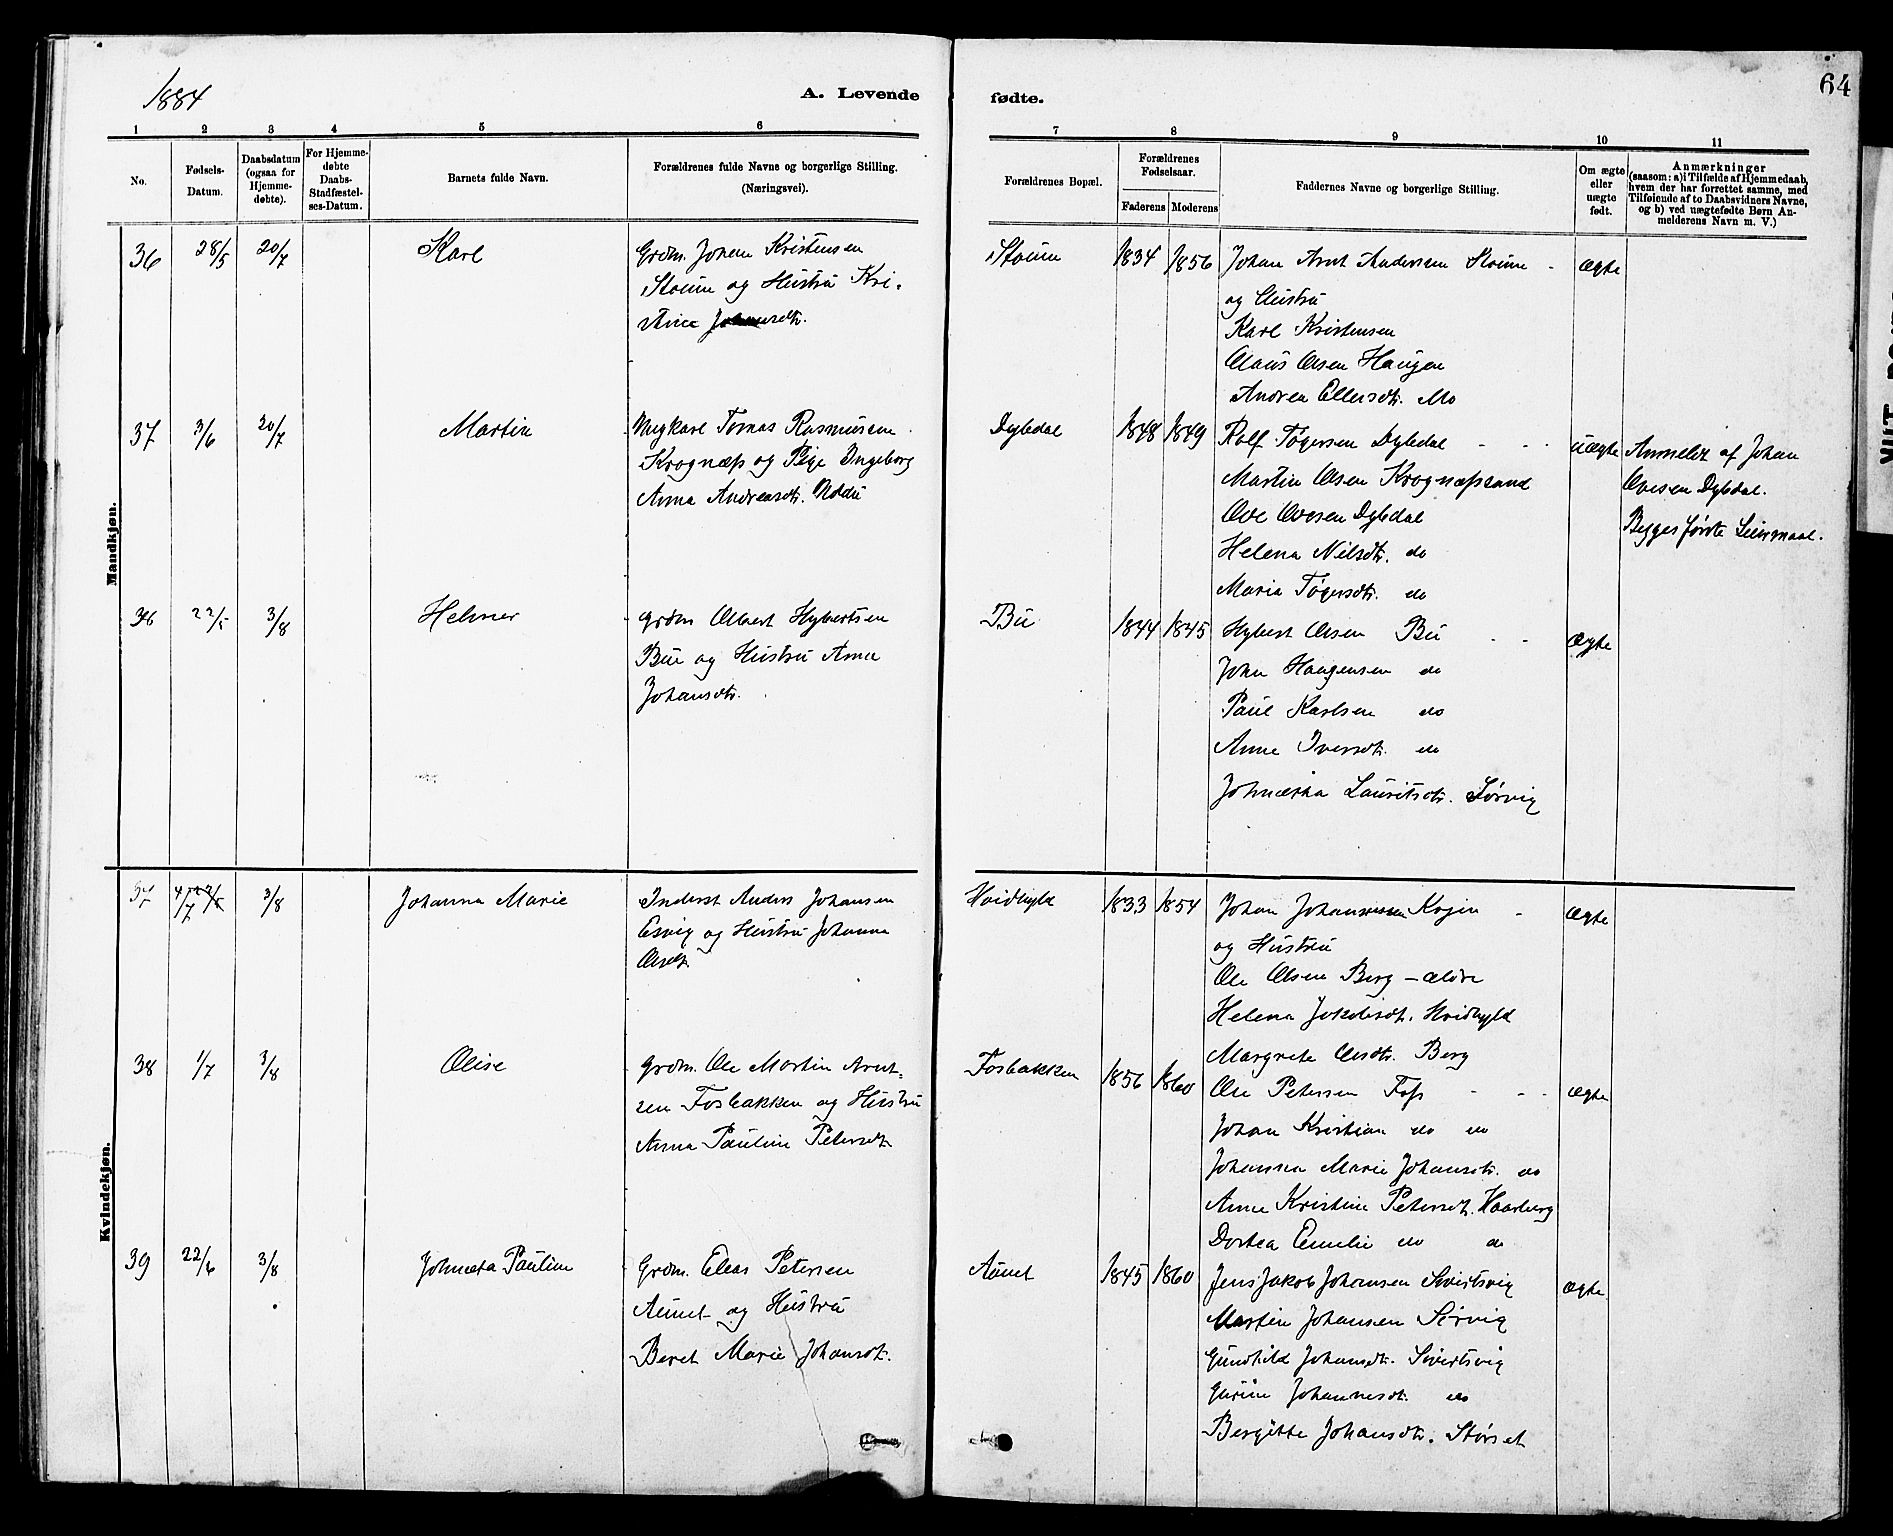 1884
A. Levende fødte.
64
1 2 3 4 5 6 7 8 9 10 11
No.
Fødsels-Datum.
Daabsdatum (ogsaa for Hjemme-døbte).
For Hjemme-døbte Daabs-Stadfæstel-ses-Datum.
Barnets fulde Navn.
Forældrenes fulde Navne og borgerlige Stilling. (Næringsvei).
Forældrenes Bopæl.
Forældrenes Fødselsaar.
Faderens Moderens
Faddernes Navne og borgerlige Stilling.
Om ægte eller uægte født.
Anmærkninger
(saasom: a) i Tilfælde af Hjemmedaab, hvem der har forrettet samme, med Tilføiende af to Daabsvidners Navne, og b) ved uægtefødte Børn An-melderens Navn m. V.)
Mandkjøn.
36 28/5 20/7 Karl
Grdm. Johan Kristensen
og Hustru Kri-
stine
1834 1856
Johan Arnt Andersen
og Hustru
Karl Kristensen
Olaus Olsen Haugen
Andrea Ellersdtr. Mo
ægte
37 3/6 20/7 Martin
Ungkarl Tomas Rasmussen
Krognæss og Pige Ingeborg
Anna Andreasdtr.
Dybdal
1848 1849
Rolf Tøgersen Dybdal
Martin Olsen Krognæssand
Ove Ovesen Dybdal
Helena Nilsdtr. do
Maria Tøgersdtr. do
uægte
Anmeldt af Johan
Ovesen Dybdal.
Begges første Leiermaal.
22/5 3/8 Helmer
Grdm Albert Hybertsen
Bu og Hustru Anne
Johansdtr.
Bu
1844 1845
Hybert Olsen Bu
John Haagensen do
Paul Karlsen do
Anne Iversdtr. do
Johnætha Lauritsdtr. Sørvig
ægte
Kvindekjøn.
37 4/7 3/8 Johanna Marie
Inderst Anders Johansen
Esvig og Hustru Johanna
Olsdtr.
Hvidbyld
1833 1854
Johan Johannessen
og Hustru
Ole Olsen Berg – ældre
Helena Jakobsdtr. Hvidbyld
Margrete Olsdtr. Berg
ægte
38 1/7 3/8 Olise
Grdm. Ole Martin Arnt-
sen Fosbakken og Hustru
Anna Pauline Petersdtr.
Fosbakken
1856 1860
Ole Petersen Foss
Johan Kristian do do
Johanna Marie Johansdtr. do
Anne Kristine Petersdtr. Haarberg
Dortea Emelie do do
ægte
39 22/6 3/8 Johnæta Pauline
Grdm. Elias Petersen
Aunet og Hustru
Beret Marie Johansdtr.
Aunet
1845 1860
Jens Jakob Johansen Sivertsvig
Martin Johansen Sørvig
Gunhild Johansdtr. Sivertsvig
Gurine Johannesdtr. do
Bergitte Johansdtr. Størset
ægte.